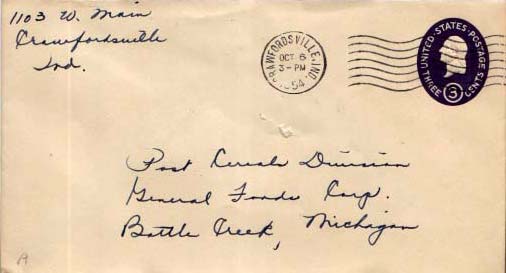 1103 W. Main
Crawfordsville
Ind.
CRAWFORDSVILLE, IND.
OCT 6
3 - PM
1954
UNITED·STATES·POSTAGE
THREE 3 CENTS
Post Cereals Division
General Foods Corp.
Battle Creek, Michigan
A